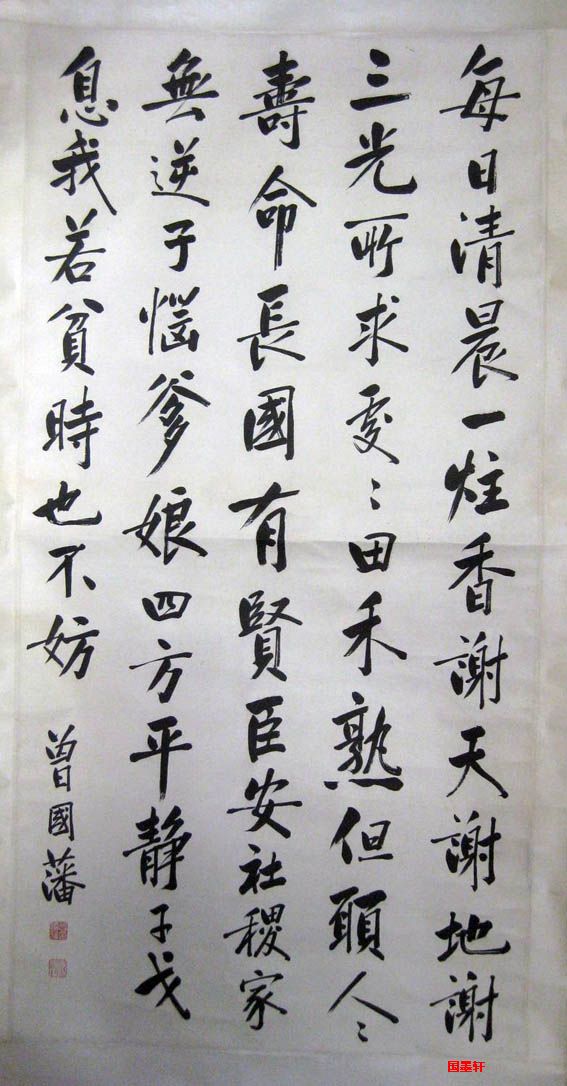 每日清晨一炷香謝天謝地謝
三光所求處〻田禾熟但願人〻
壽命長國有賢臣安社稷家
無逆子惱爹娘四方平靜干戈
息我若貧時也不妨
曾國藩
国墨轩